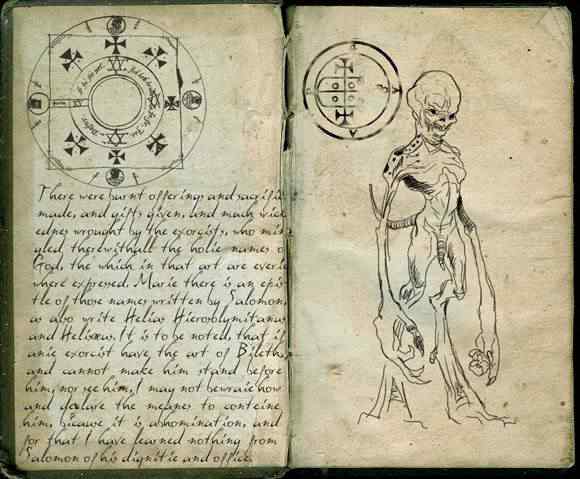 There were burnt offerings and sacrifice
made, and gifts given, and much wick
ednes wrought by the exorcists, who min
gled therewithall the holie names of
God, the which in that art are everie
where expressed. Marie there is an epis
tle of those names written by Salomon,
as also write Helias Hierosolymitanus
and Helisæus. It is to be noted, that if
anie exorcist have the art of Bileth,
and cannot make him stand before
him, nor see him, I may not bewraie how
and declare the meanes to conteine
him, bicause it is abhomination, and
for that I have learned nothing from
Salomon of his dignitie and office.